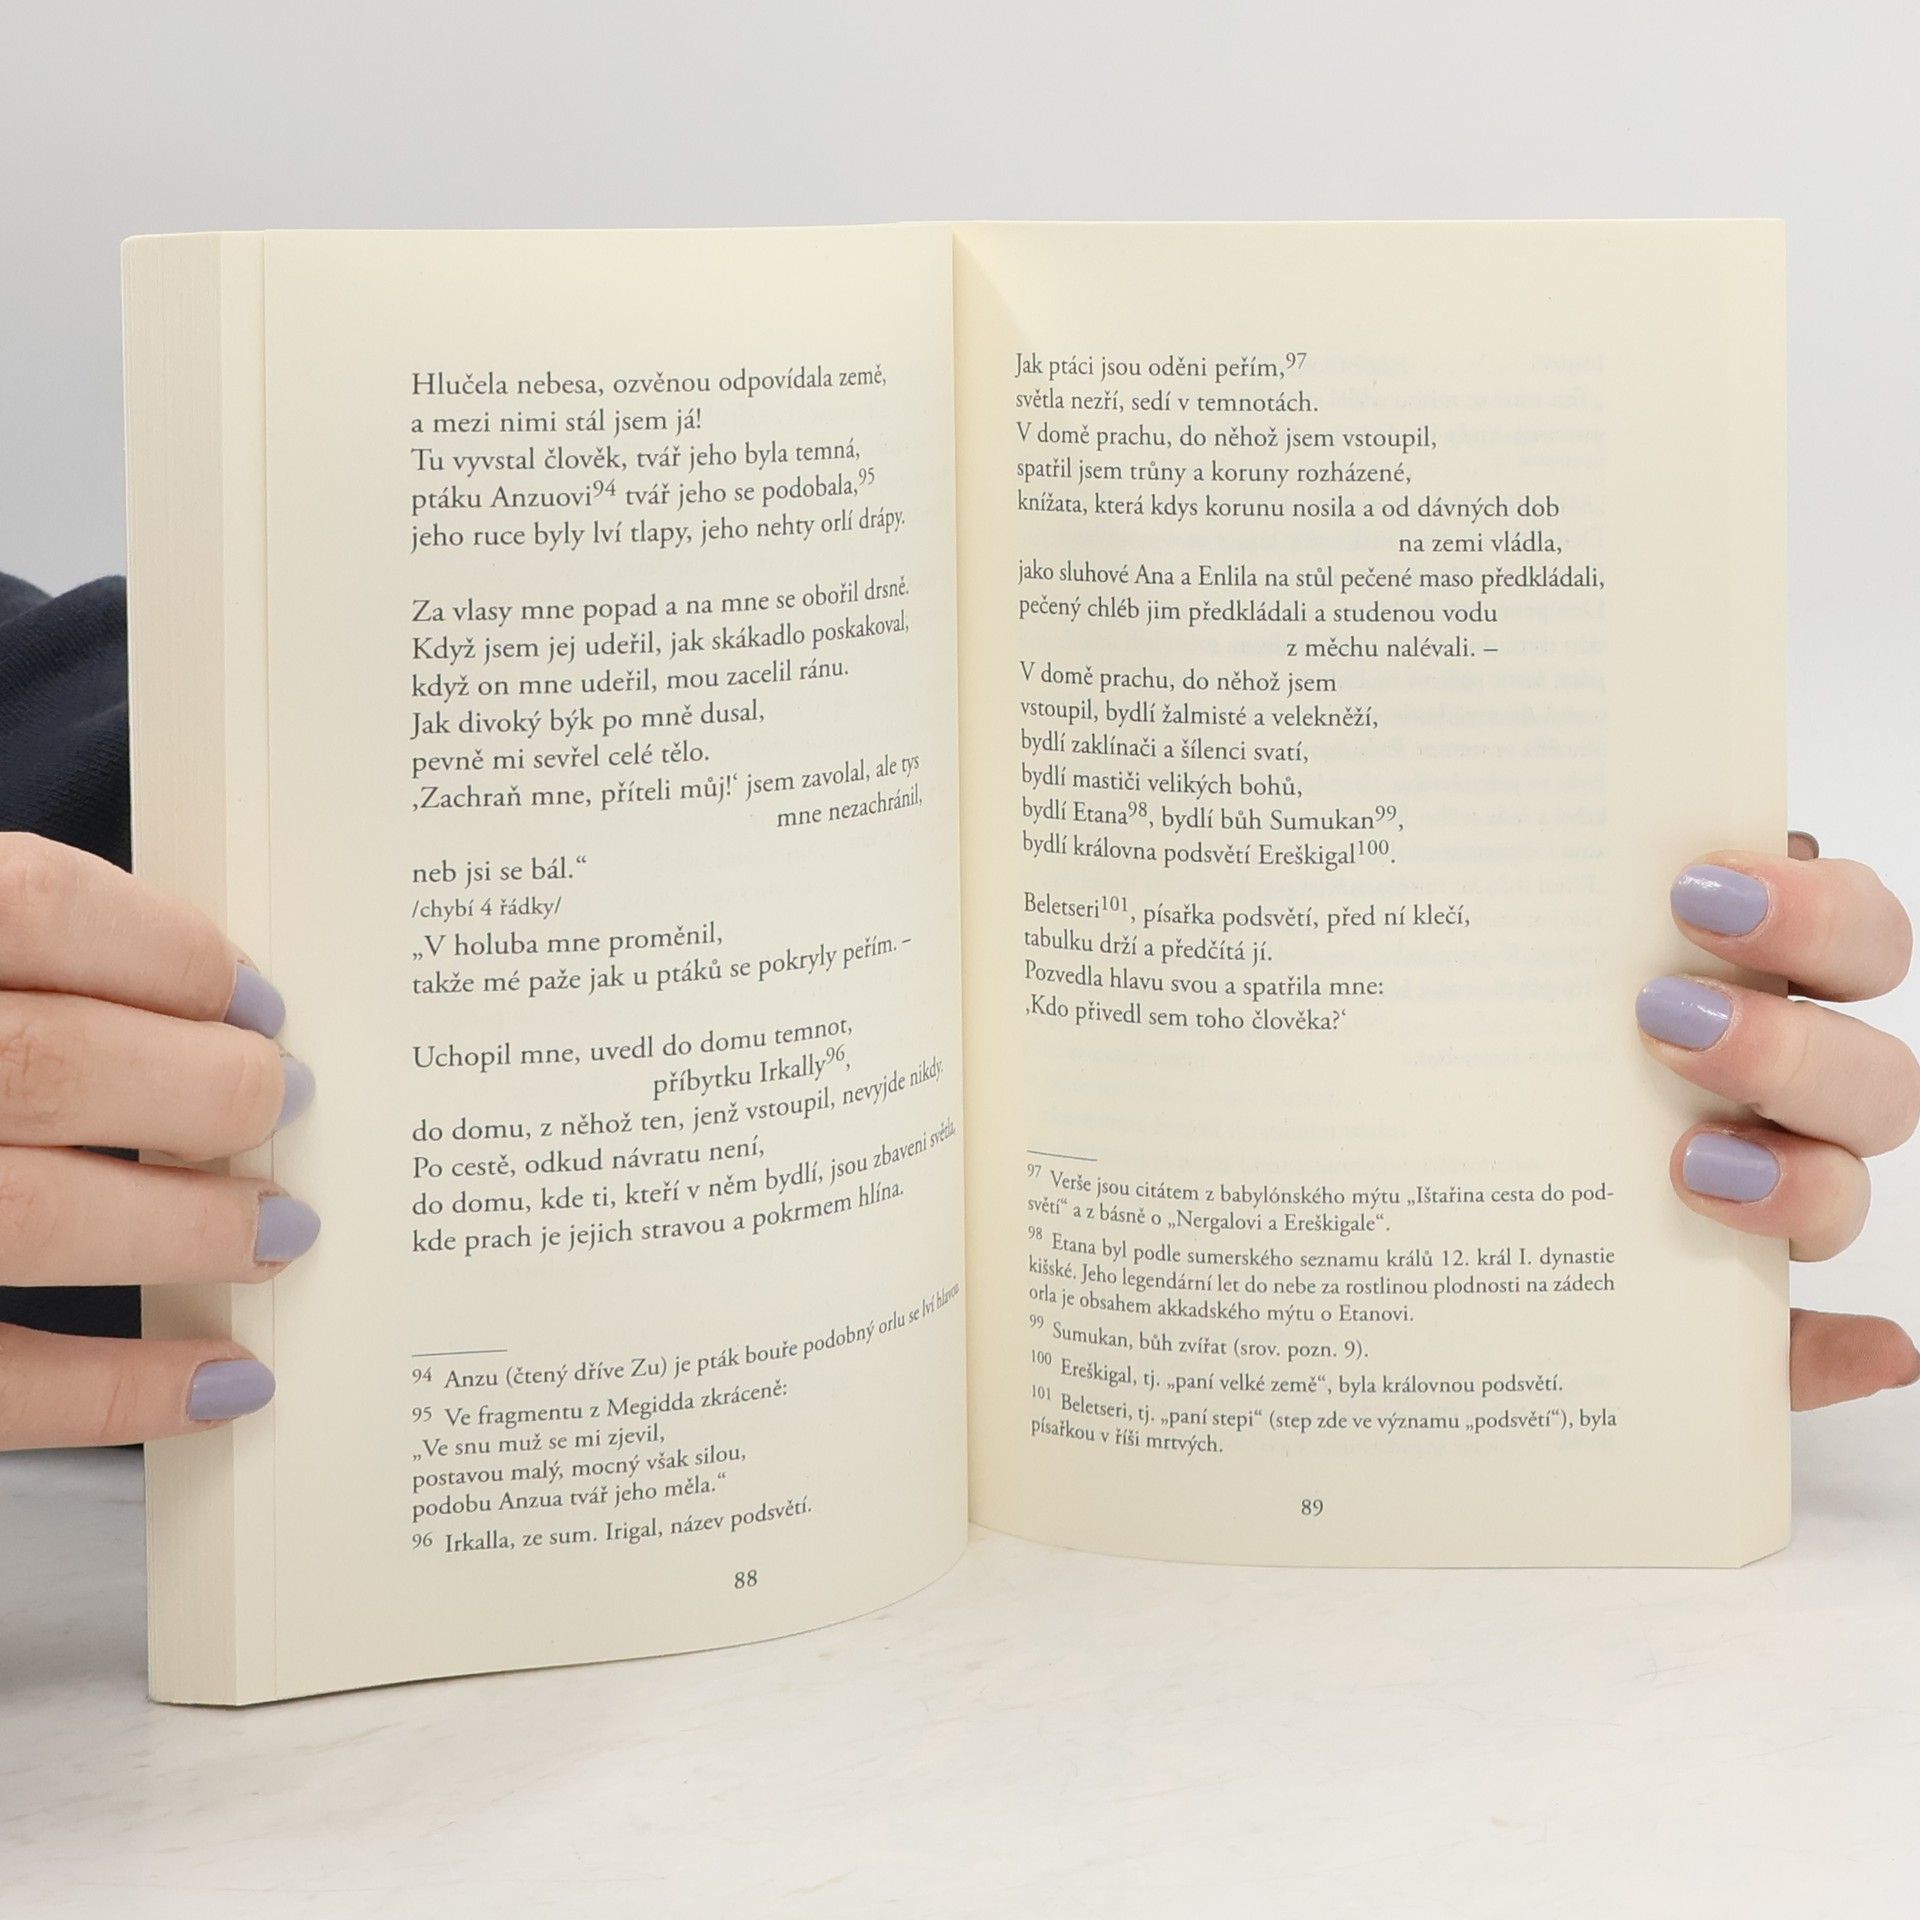 Hlučela nebesa, ozvěnou odpovídala země,
a mezi nimi stál jsem já!
Tu vyvstal člověk, tvář jeho byla temná,
ptáku Anzuovi94 tvář jeho se podobala,95
jeho ruce byly lví tlapy, jeho nehty orlí drápy.
Za vlasy mne popad a na mne se obořil drsně.
Když jsem jej udeřil, jak skákadlo poskakoval,
když on mne udeřil, mou zacelil ránu.
Jak divoký býk po mně dusal,
pevně mi sevřel celé tělo.
‚Zachraň mne, příteli můj!‘ jsem zavolal, ale tys
mne nezachránil,
neb jsi se bál.“
/chybí 4 řádky/
„V holuba mne proměnil,
takže mé paže jak u ptáků se pokryly peřím. –
Uchopil mne, uvedl do domu temnot,
příbytku Irkally96,
do domu, z něhož ten, jenž vstoupil, nevyjde nikdy.
Po cestě, odkud návratu není,
do domu, kde ti, kteří v něm bydlí, jsou zbaveni světla,
kde prach je jejich stravou a pokrmem hlína.
94 Anzu (čtený dříve Zu) je pták bouře podobný orlu se lví hlavou.
95 Ve fragmentu z Megidda zkráceně:
„Ve snu muž se mi zjevil,
postavou malý, mocný však silou,
podobu Anzua tvář jeho měla.“
96 Irkalla, ze sum. Irigal, název podsvětí.
88
Jak ptáci jsou oděni peřím,97
světla nezří, sedí v temnotách.
V domě prachu, do něhož jsem vstoupil,
spatřil jsem trůny a koruny rozházené,
knížata, která kdys korunu nosila a od dávných dob
na zemi vládla,
jako sluhové Ana a Enlila na stůl pečené maso předkládali,
pečený chléb jim předkládali a studenou vodu
z měchu nalévali. –
V domě prachu, do něhož jsem
vstoupil, bydlí žalmisté a velekněží,
bydlí zaklínači a šílenci svatí,
bydlí mastiči velikých bohů,
bydlí Etana98, bydlí bůh Sumukan99,
bydlí královna podsvětí Ereškigal100.
Beletseri101, písařka podsvětí, před ní klečí,
tabulku drží a předčítá jí.
Pozvedla hlavu svou a spatřila mne:
‚Kdo přivedl sem toho člověka?‘
97 Verše jsou citátem z babylónského mýtu „Ištařina cesta do pod-
světí“ a z básně o „Nergalovi a Ereškigale“.
98 Etana byl podle sumerského seznamu králů 12. král I. dynastie
kišské. Jeho legendární let do nebe za rostlinou plodnosti na zádech
orla je obsahem akkadského mýtu o Etanovi.
99 Sumukan, bůh zvířat (srov. pozn. 9).
100 Ereškigal, tj. „paní velké země“, byla královnou podsvětí.
101 Beletseri, tj. „paní stepi“ (step zde ve významu „podsvětí“), byla
písařkou v říši mrtvých.
89